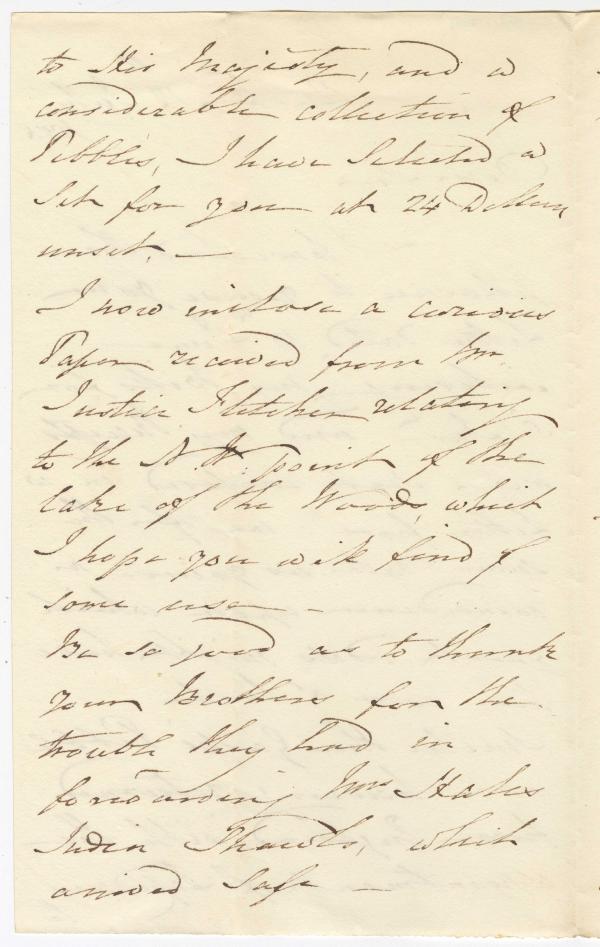 to His Majesty, and a
considerable collection of
Pebbles, I have Selected a
Set for you at 24 Dollars
unset. —
I now inclose a curious
Paper received from Mr.
Justice Fletcher relating
to the N. W. point of the
Lake of the Woods, which
I hope you will find of
some use —
Be so good as to thank
your Brothers for the
trouble they had in
forwarding Mrs Hales
India Shawls, which
arrived Safe —